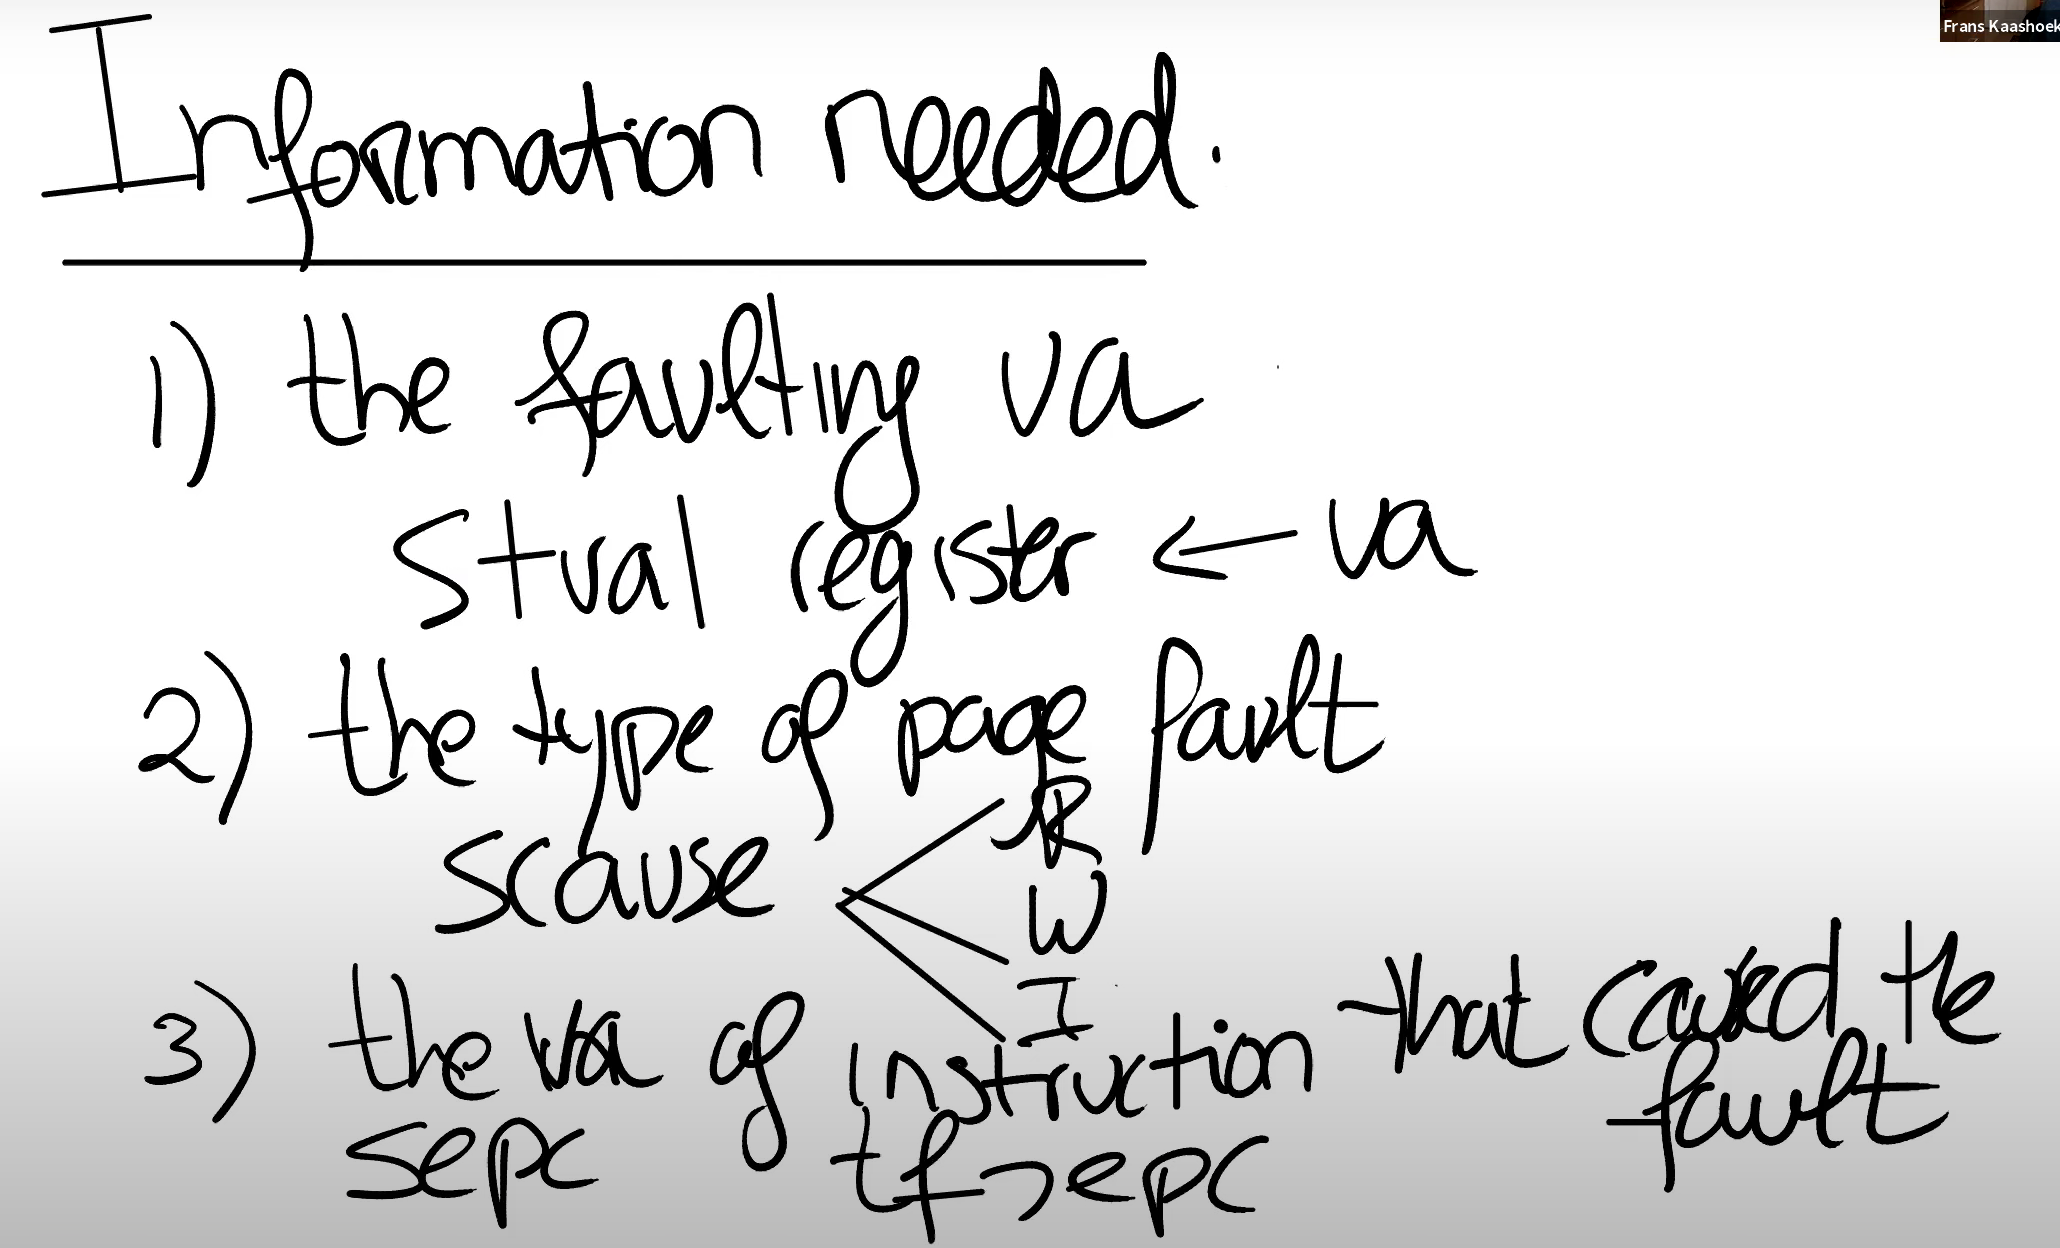 Frans Kaashoek
Information needed.
1) the faulting va
stval register ← va
2) the type of page fault
scause R
W
I
3) the va of instruction that caused the
fault
sepc tf->epc